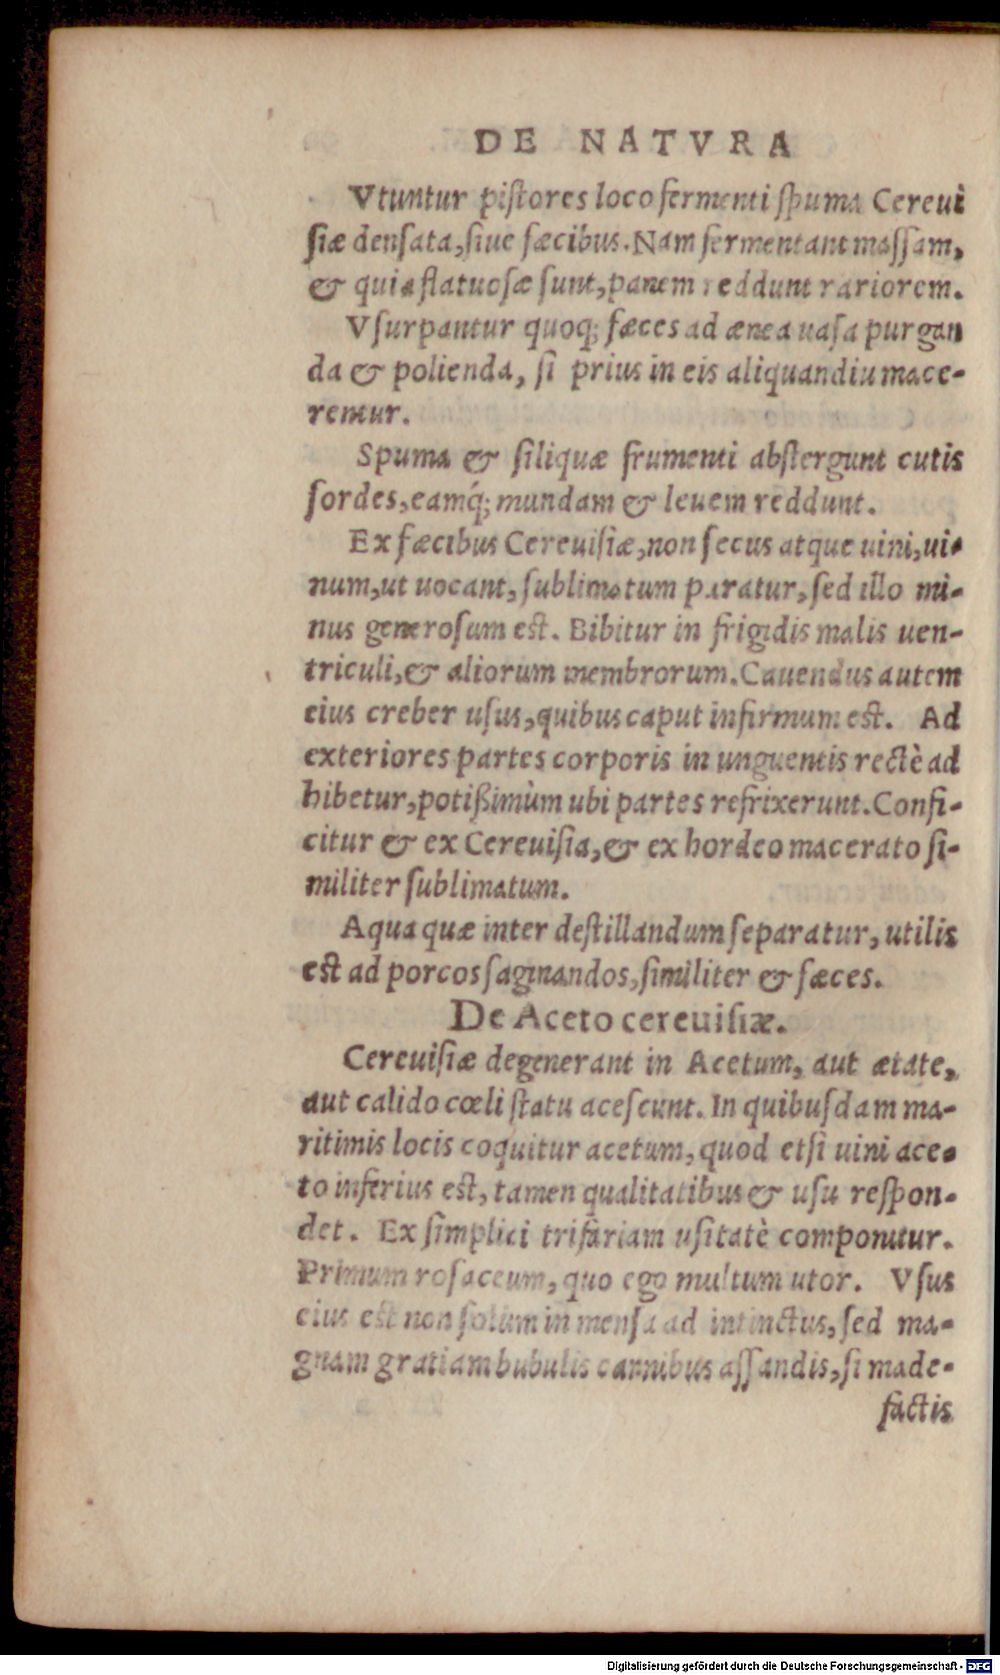 DE NATVRA
Vtuntur piſtores loco fermenti ſpuma Cereui
ſiæ denſata, ſiue fæcibus. Nam fermentant maſſam,
& quia flatuoſæ ſunt, panem reddunt rariorem.
Vſurpantur quoq; fæces ad ænea uaſa purgan
da & polienda, ſi prius in eis aliquandiu mace-
rentur.
Spuma & ſiliquæ frumenti abſtergunt cutis
ſordes, eamq́; mundam & leuem reddunt.
Ex fæcibus Cereuiſiæ, non ſecus atque uini, ui-
num, ut uocant, ſublimatum paratur, ſed illo mi-
nus generoſum est. Bibitur in frigidis malis uen-
triculi, & aliorum membrorum. Cauendus autem
eius creber uſus, quibus caput infirmum est. Ad
exteriores partes corporis in unguentis rectè ad
hibetur, potißimùm ubi partes refrixerunt. Confi-
citur & ex Cereuiſia, & ex hordeo macerato ſi-
militer ſublimatum.
Aqua quæ inter deſtillandum ſeparatur, utilis
est ad porcos ſaginandos, ſimiliter & fæces.
De Aceto cereuiſiæ.
Cereuiſiæ degenerant in Acetum, aut ætate,
aut calido cœli ſtatu aceſcunt. In quibuſdam ma-
ritimis locis coquitur acetum, quod etſi uini ace-
to inferius est, tamen qualitatibus & uſu reſpon-
det. Ex ſimplici trifariam uſitatè componitur.
Primum roſaceum, quo ego multum utor. Vſus
eius est non ſolum in menſa ad intinctus, ſed ma-
gnam gratiam bubulis carnibus aſſandis, ſi made-
factis
Digitalisierung gefördert durch die Deutsche Forschungsgemeinschaft - DFG